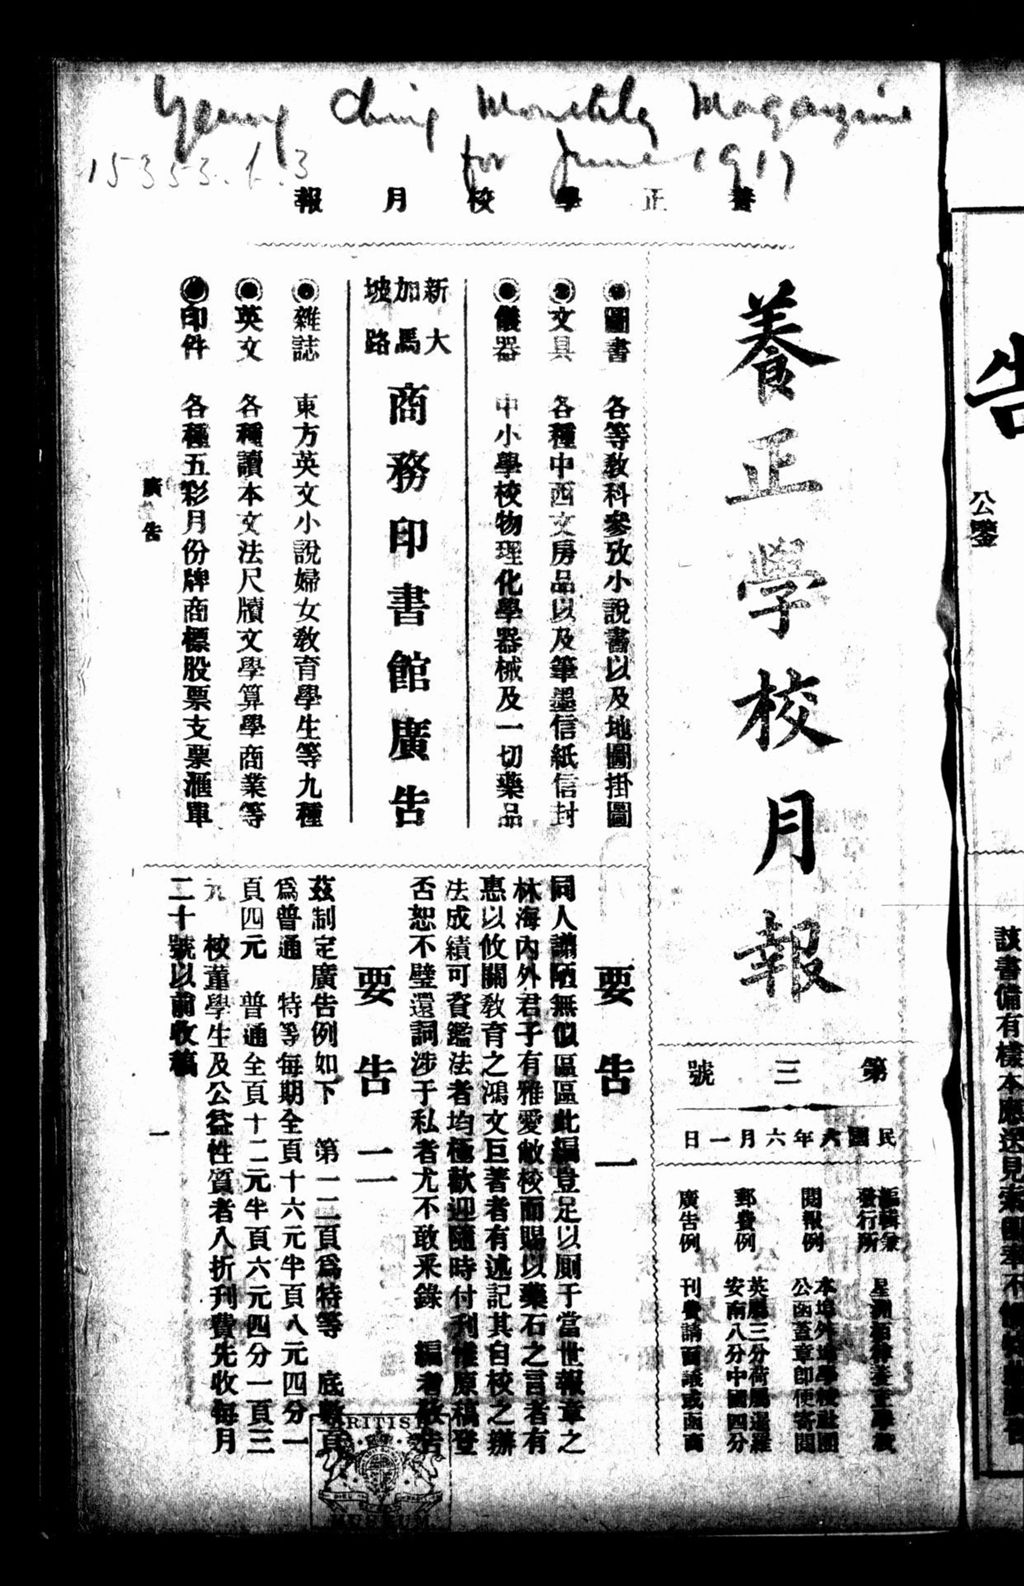 Yeung Ching Monthly Magazine
for June 1917
15353.b.3
養正學校月報
養正學校月報
第三號
民國六年六月一日
編輯兼發行所
養正學校
閱報例
本埠外埠學校社團
公函蓋章即便寄閱
郵費例
英屬三分荷屬暹羅
安南八分中國四分
廣告例
刊費請面議或函商
圖書 各等教科參攷小說書以及地圖掛圖
文具 各種中西文房品以及筆墨信紙信封
儀器 中小學校物理化學器械及一切藥品
新加坡
大馬路
商務印書館廣告
雜誌 東方英文小說婦女教育學生等九種
英文 各種讀本文法尺牘文學算學商業等
印件 各種五彩月份牌商標股票支票滙單
廣告
要告一
同人譾陋無似區區此編豈足以厠于當世報章之
林海內外君子有雅愛敝校而賜以藥石之言者有
惠以攸關教育之鴻文巨著者有述記其自校之辦
法成績可資鑑法者均極歡迎隨時付刊惟原稿登
否恕不璧還詞涉于私者尤不敢采錄 編者敬告
要告二
茲制定廣告例如下 第一二頁爲特等 底數頁
爲普通 特等每期全頁十六元半頁八元四分一
頁四元 普通全頁十二元半頁六元四分一頁三
元 校董學生及公益性質者八折刊費先收每月
二十號以前收稿
一
BRITISH
MUSEUM
告
公鑒
該書備有樣本應送見索